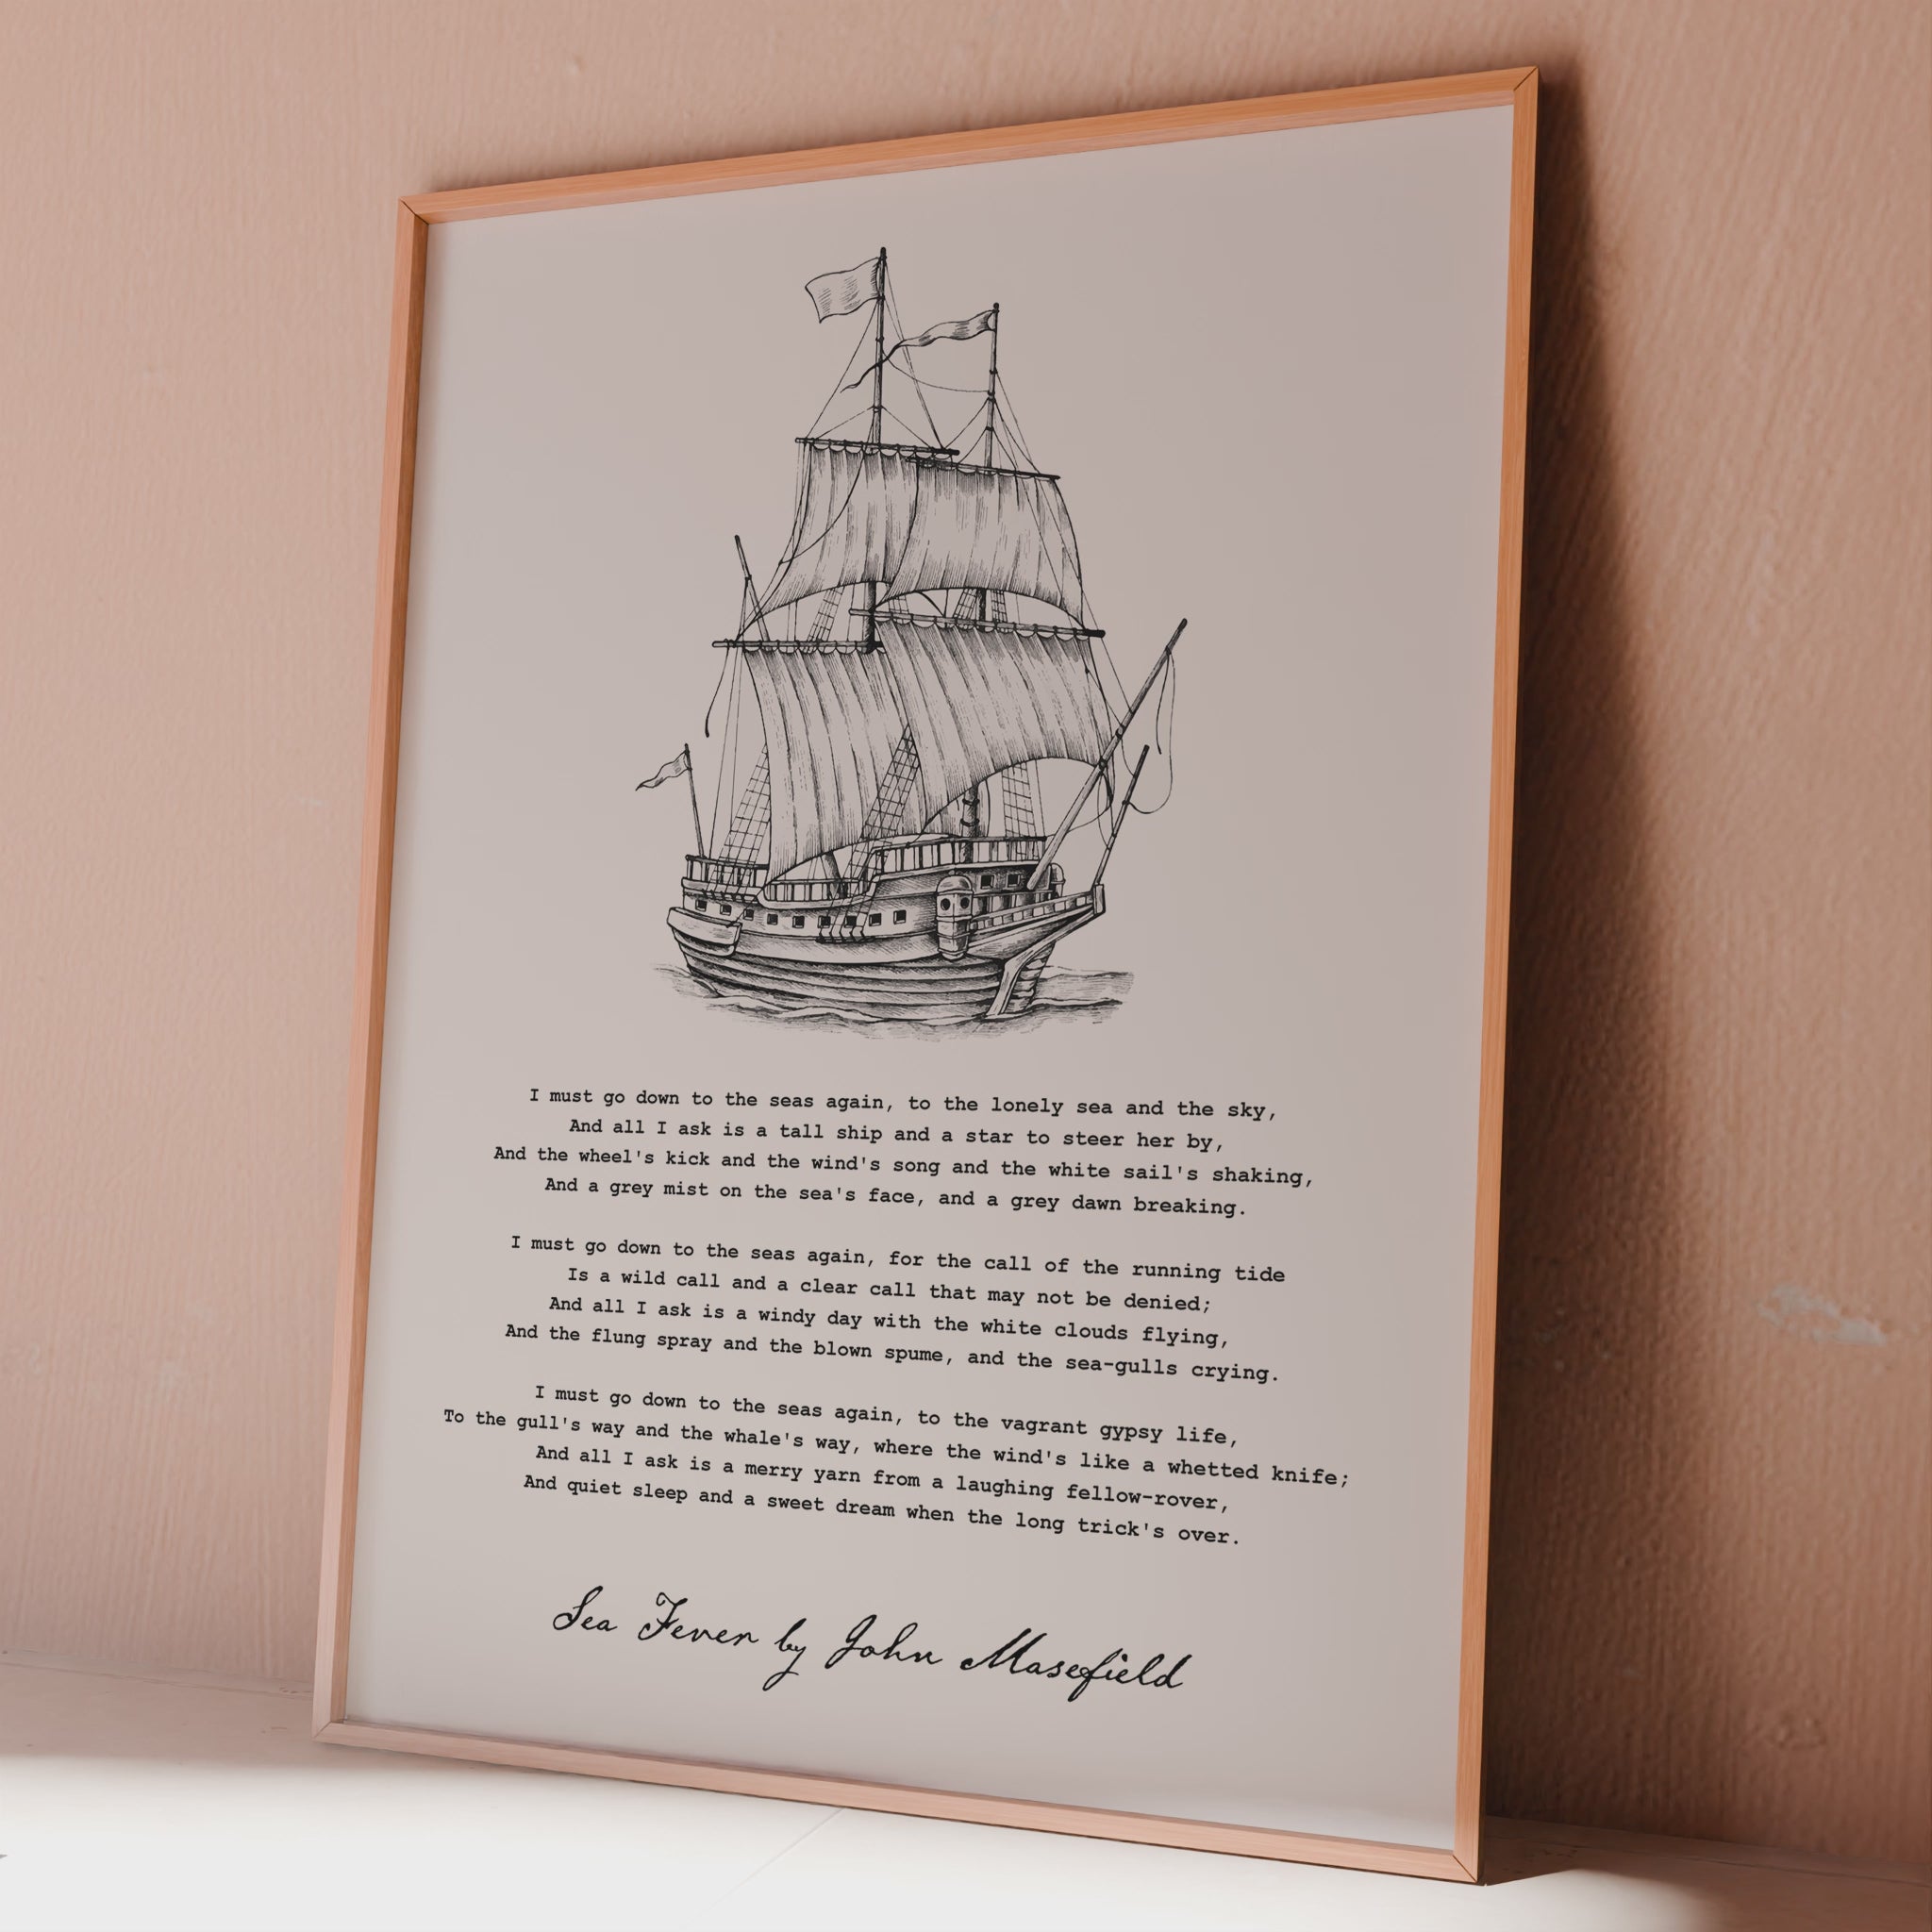 I must go down to the seas again, to the lonely sea and the sky,
And all I ask is a tall ship and a star to steer her by,
And the wheel's kick and the wind's song and the white sail's shaking,
And a grey mist on the sea's face, and a grey dawn breaking.
I must go down to the seas again, for the call of the running tide
Is a wild call and a clear call that may not be denied;
And all I ask is a windy day with the white clouds flying,
And the flung spray and the blown spume, and the sea-gulls crying.
I must go down to the seas again, to the vagrant gypsy life,
To the gull's way and the whale's way, where the wind's like a whetted knife;
And all I ask is a merry yarn from a laughing fellow-rover,
And quiet sleep and a sweet dream when the long trick's over.
Sea Fever by John Masefield